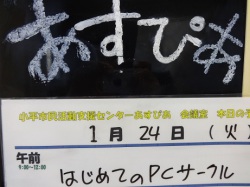 あすぴあ
小平市民活動支援センターあすぴあ 会議室 本日の予
1月24日(火)
午前
9:00~12:00
はじめてのPCサークル